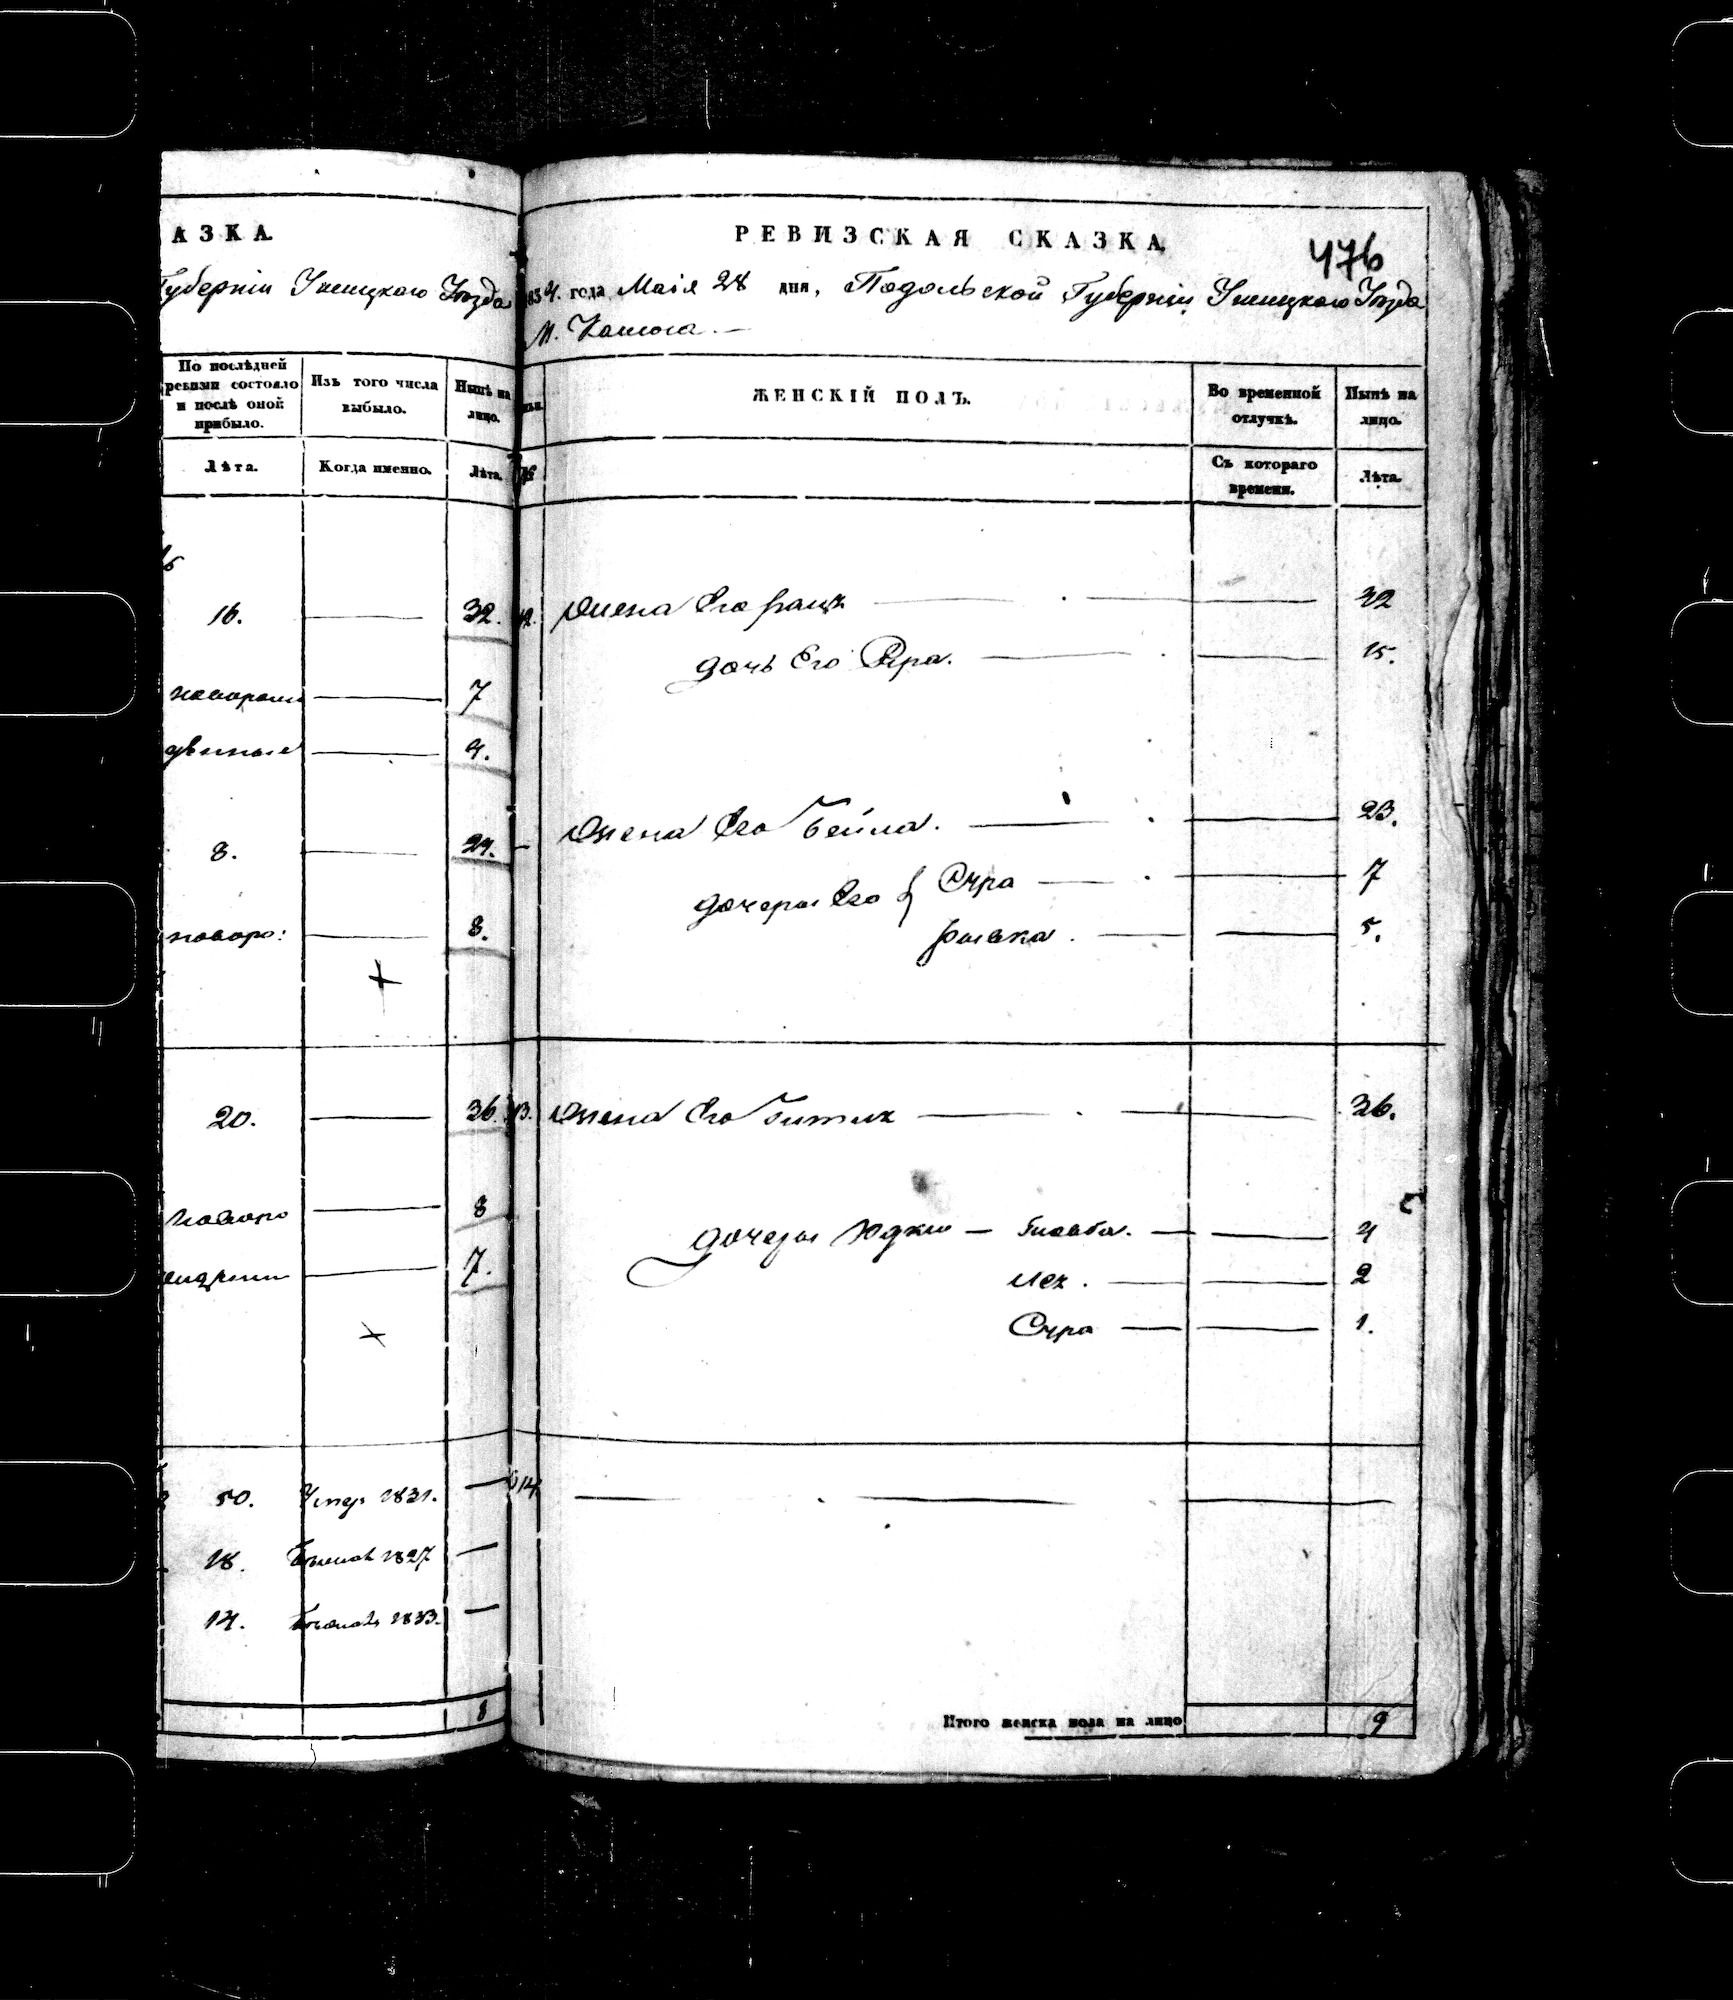 АЗКА.
Губерніи Ушицкаго Уѣзда
По послѣдней ревизіи состояло и послѣ оной прибыло.
Изъ того числа выбыло.
Нынѣ на лицо.
Лѣта.
Когда именно.
Лѣта.
16. 32.
7
4.
8. 24.
8.
20. 36.
8
7.
50. 1831.
18. 1827
14. 1833.
8
РЕВИЗСКАЯ СКАЗКА,
476
1834. года Маія 28 дня, Подольской Губерніи, Ушицкаго Уѣзда
М.
ЖЕНСКІЙ ПОЛЪ.
Во временной отлучкѣ.
Нынѣ на лицо.
№
Съ котораго времени.
Лѣта.
12. Жена Его 32
дочь Его 15.
Жена Его Бейла. 23.
дочеры Его { Сура 7
Рывка. 5.
13. Жена Его 36.
дочеры 4
Лея. 2
Сура 1.
14.
Итого женска пола на лицо 9